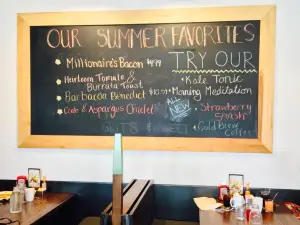 OUR SUMMER FAVORITES
Millionaire's Bacon
Heirloom Tomato &
Burrata Toast
Barbacoa Benedict
Crab & Asparagus Omelet
TRY OUR
Kale Tonic
Morning Meditation
ALL NEW
Strawberry
Smash
Cold Brew
Coffee